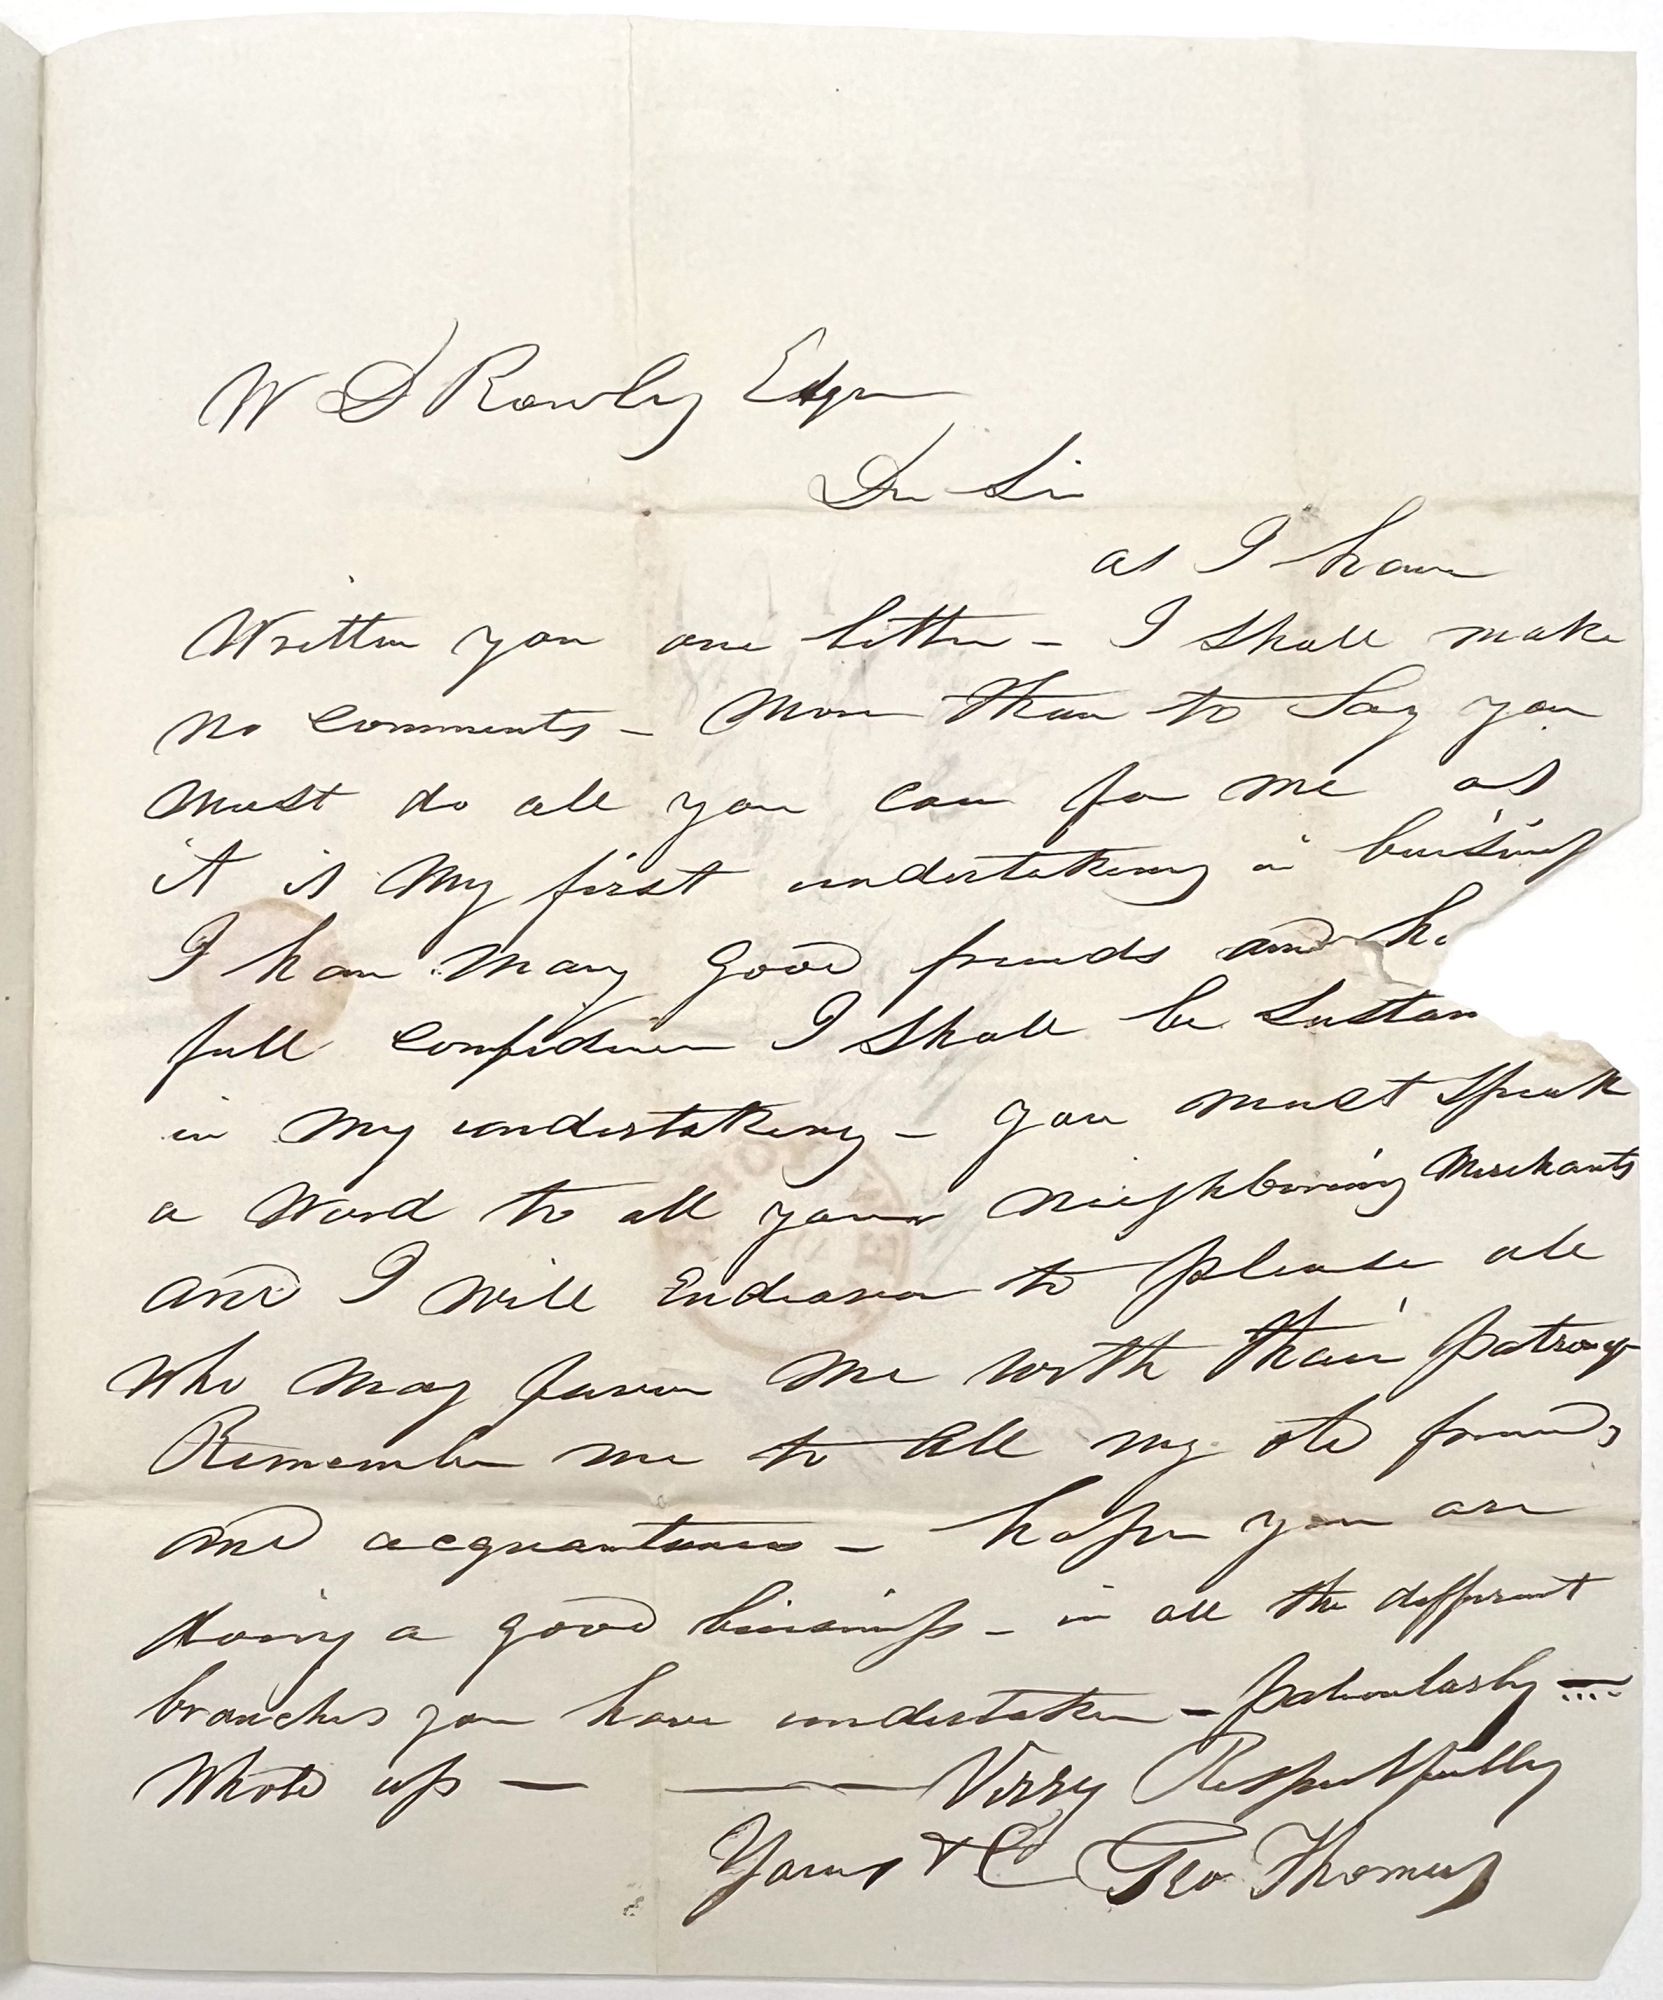 W D Rowley Esqr
Dr Sir
as I have
Written you one letter – I shall make
no comments – More than to Say you
must do all you can for me as
it is my first undertaking in buisiness
I have many good friends and h
full confidence I shall be Sustain
in my undertaking – you must Speak
a Word to all your neighboring Merchants
and I will Endeavor to please all
Who may favor me with their patronage
Remember me to All my old friends
and acquantances – hope you are
doing a good buisiness – in all the different
branches you have undertaken – paticularly –
Whole up – — Verry Respectfully
Yours &C Geo Thomas
NEW YORK